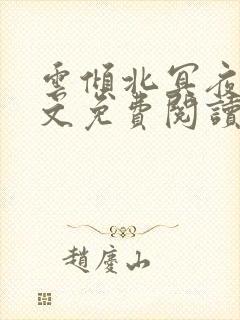 雲傾北冥夜
文免費閱讀
趙慶山